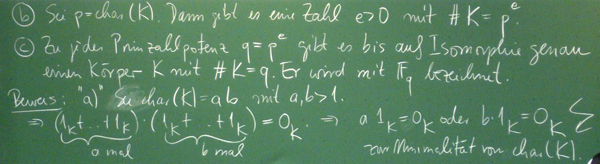 (b) Sei p = char(K). Dann gibt es eine Zahl e>0 mit #K = p^e.
(c) Zu jeder Primzahlpotenz q = p^e gibt es bis auf Isomorphie genau
einen Körper K mit #K = q. Er wird mit 𝔽_q bezeichnet.
Beweis: "a)" Sei char(K) = ab mit a,b>1.
⇒ (1_K+...+1_K)·(1_K+...+1_K) = 0_K. ⇒ a·1_K = 0_K oder b·1_K = 0_K ↯
a mal b mal zur Minimalität von char(K).